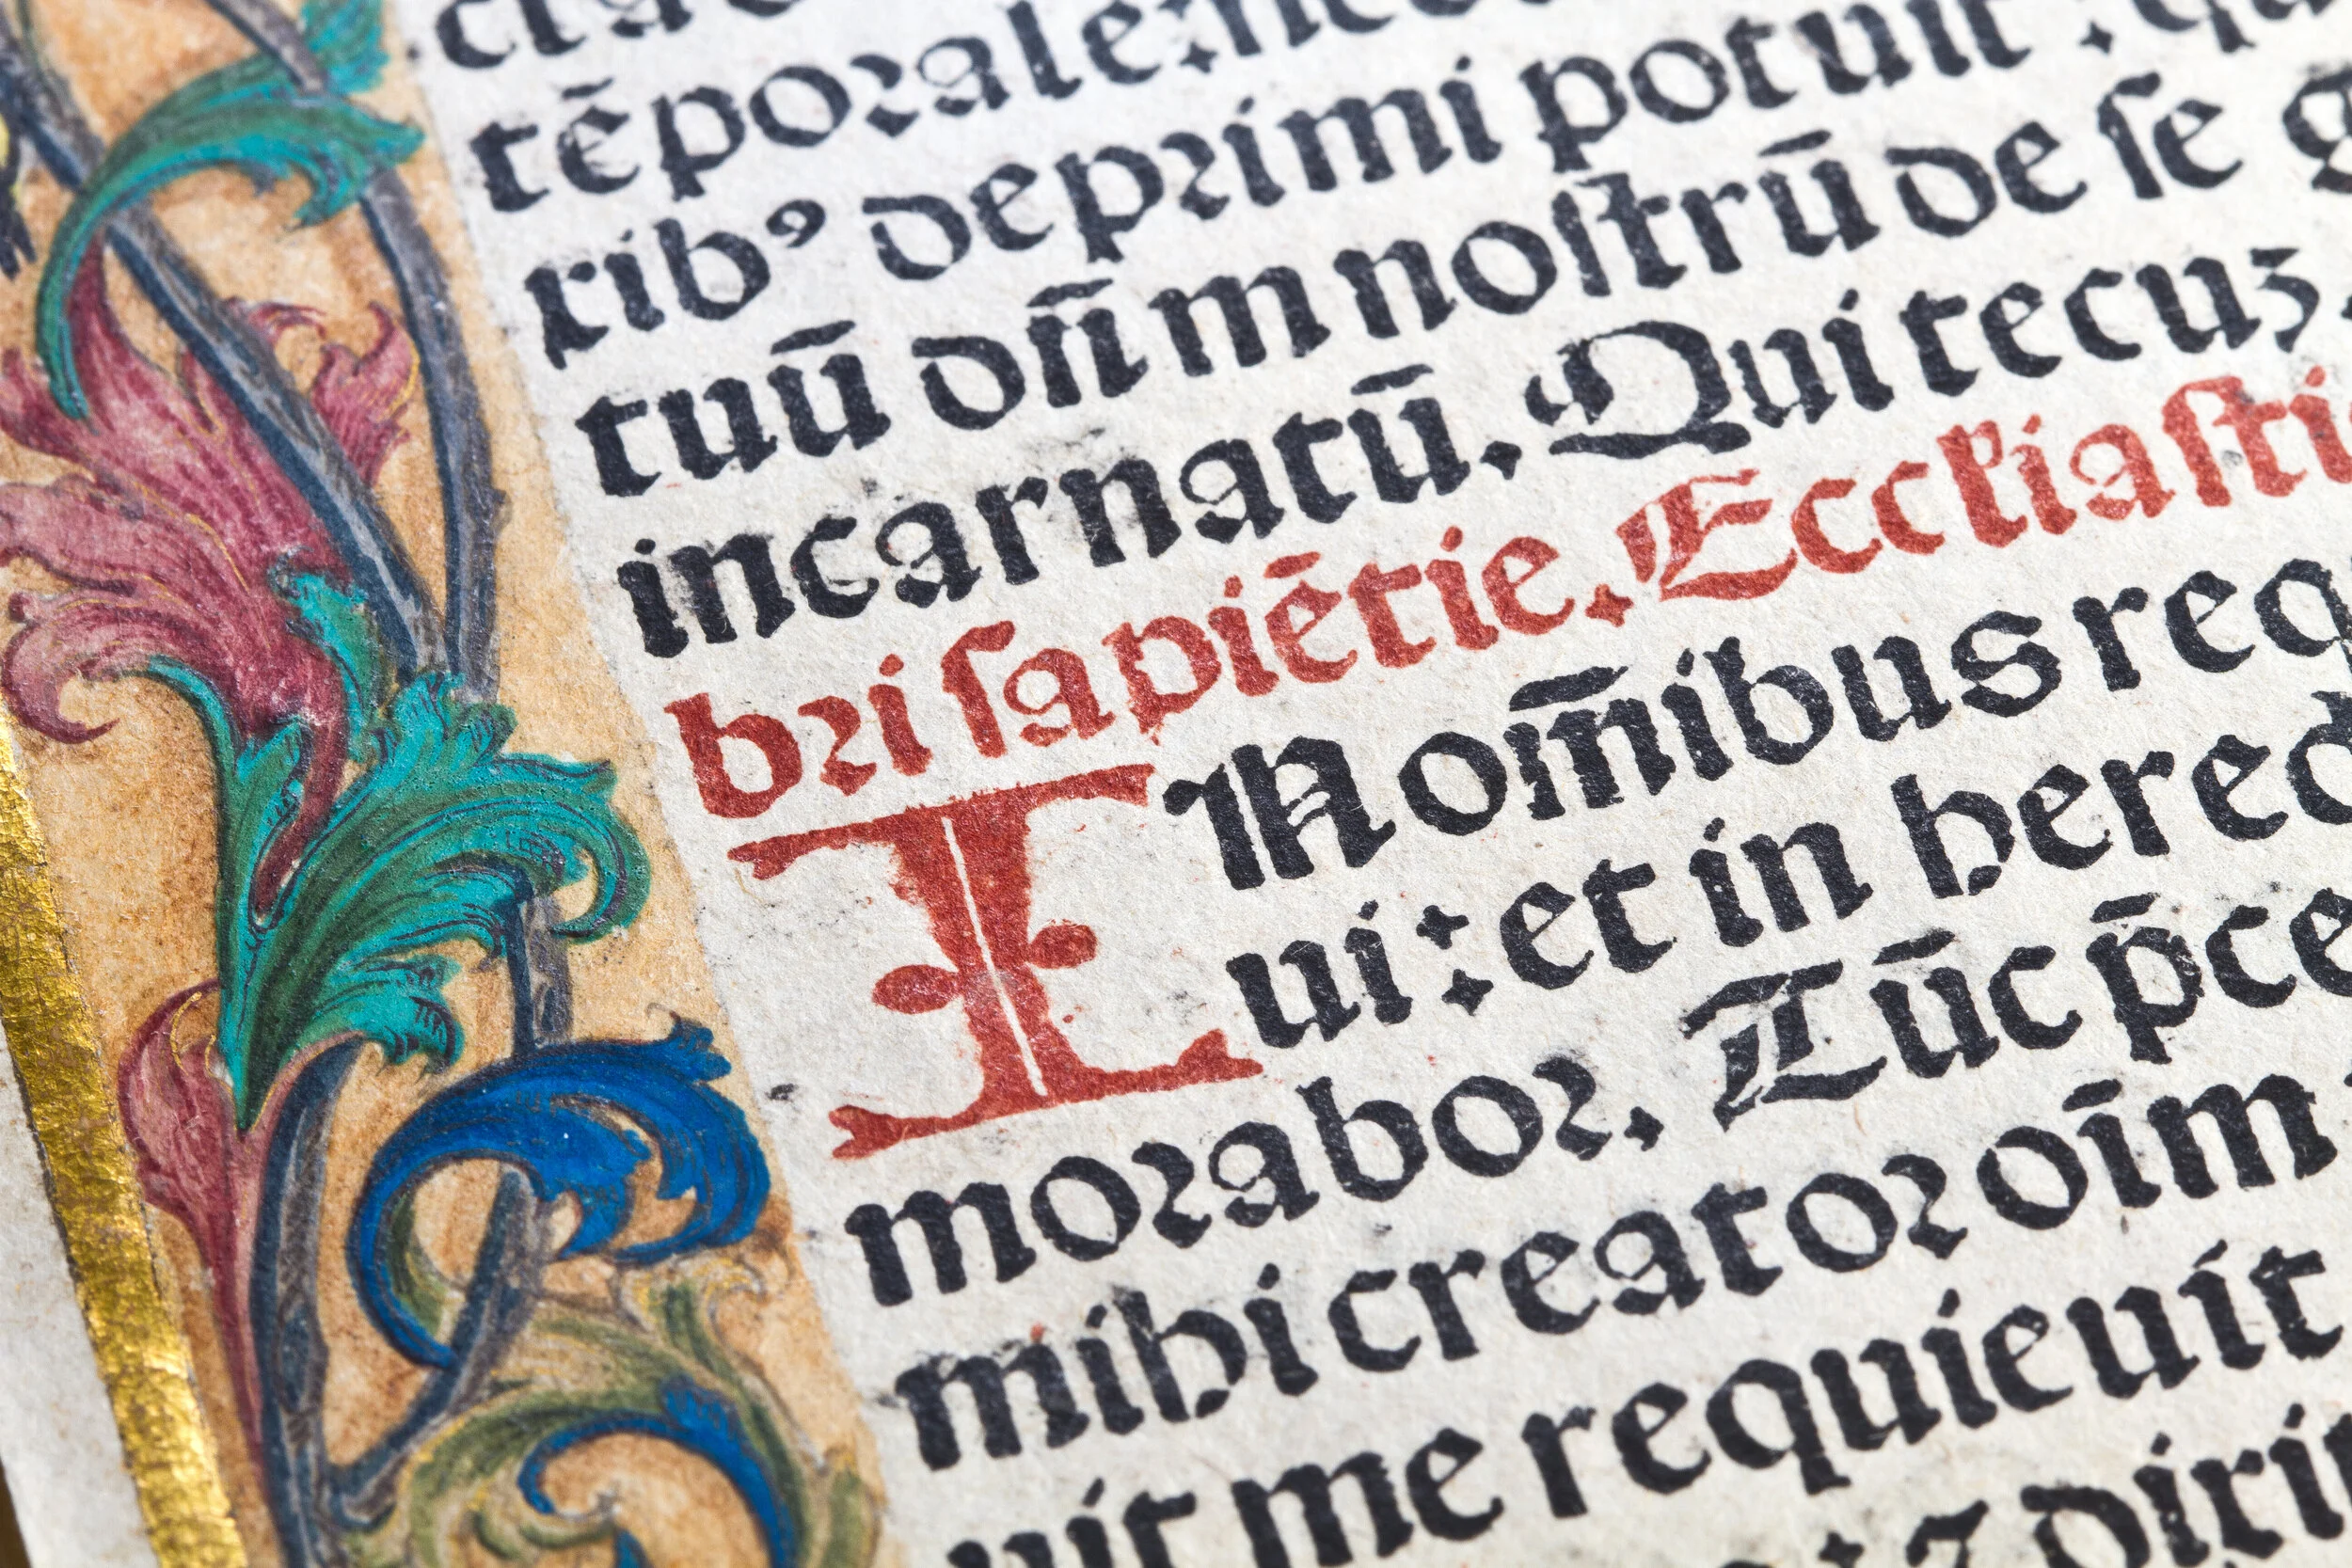 tēporale:
rib⁹ deprimi potuit :
tuū dn̄m noſtrū de ſe
incarnatū. Qui tecuꝫ
bri ſapiētie. Eccl̄iaſti
IN om̄ibus req
ui: et in hered
morabor. Tūc p̄ce
mihi creator oīm
uit me requieuit